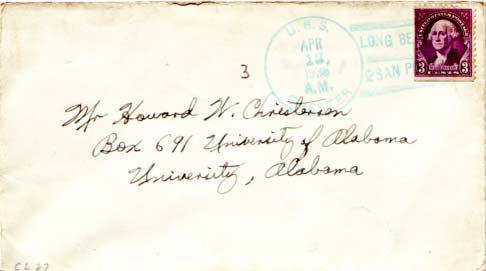 U.S.S.
APR
12
A.M.
LONG BE
SAN P
UNITED STATES POSTAGE
3 3
CENTS
3
Mr Howard W. Christensen
Box 691 University of Alabama
University, Alabama
CL 27